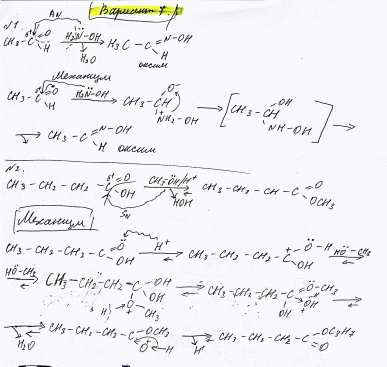 Вариант 7.
N1. AN
CH3-C δ+ =O H H2N̈-OH H2O H3C-C=N-OH H
оксим
Механизм
CH3-C δ+ =O H H2N̈-OH → CH3-CH O- +NH2-OH → [CH3-CH OH NH-OH] →
→ CH3-C=N-OH H оксим
N2.
CH3-CH2-CH2-C δ+ =O OH CH3ÖH/H+ HOH CH3-CH2-CH2-C=O OCH3
SN
Механизм
CH3-CH2-CH2-C=O OH H+ ⇌ CH3-CH2-CH2-C+ Ö-H OH HÖ-CH3 ⇌
HÖ-CH3 ⇌ CH3-CH2-CH2-C-OH OH H O+ CH3 ⇌ CH3-CH2-CH2-C OCH3 OH ⇌
⇌ H2O CH3-CH2-CH2-C-OCH3 O+-H ⇌ H+ CH3-CH2-CH2-C OC3H7 O